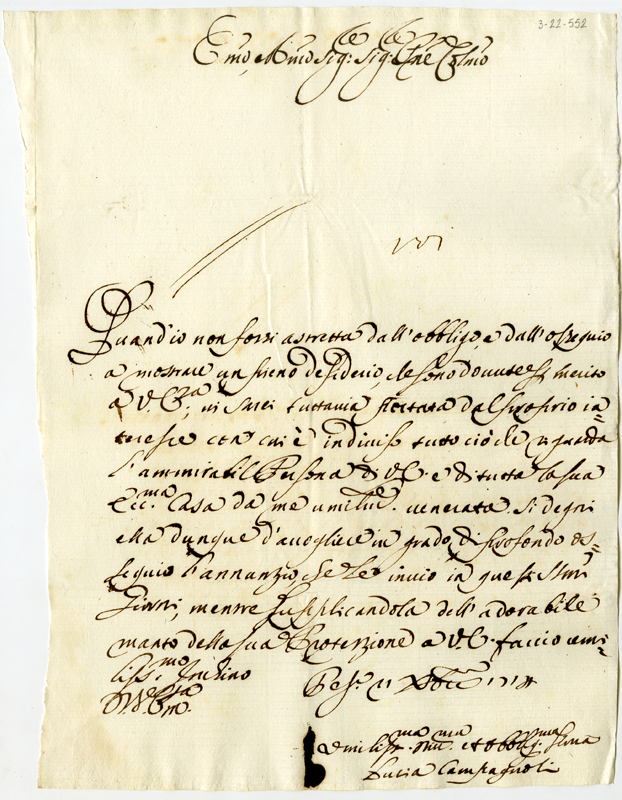 3-22-552
Em̃o, e Rmo Sig:re Sig:re Pñe Colmo
Quand'io non fossi astretta dall'obbligo, e dall'ossequio
a mostrare un pieno desiderio, che sono dovute al merito
a V. E:za, vi sarei tuttavia portata dal proprio in=
teresse con cui è indiviso tutto ciò che riguarda
l'ammirabil Persona di V. E. e di tutta la sua
Ecc:ma Casa da me umilm:e venerata. Si degni
ella dunque d'accogliere in grado di profondo os=
sequio l'annunzio, che Le invio in questi SSmi
Giorni, mentre supplicandola dell'adorabile
manto della sua Protezzione a V. E. faccio umi=
liss:mo Inchino
D V. Em:za
Pes:o 21 Xbre 1714
Umiliss:ma Dma et obblig:ma Serva
Lucia Campagnoli